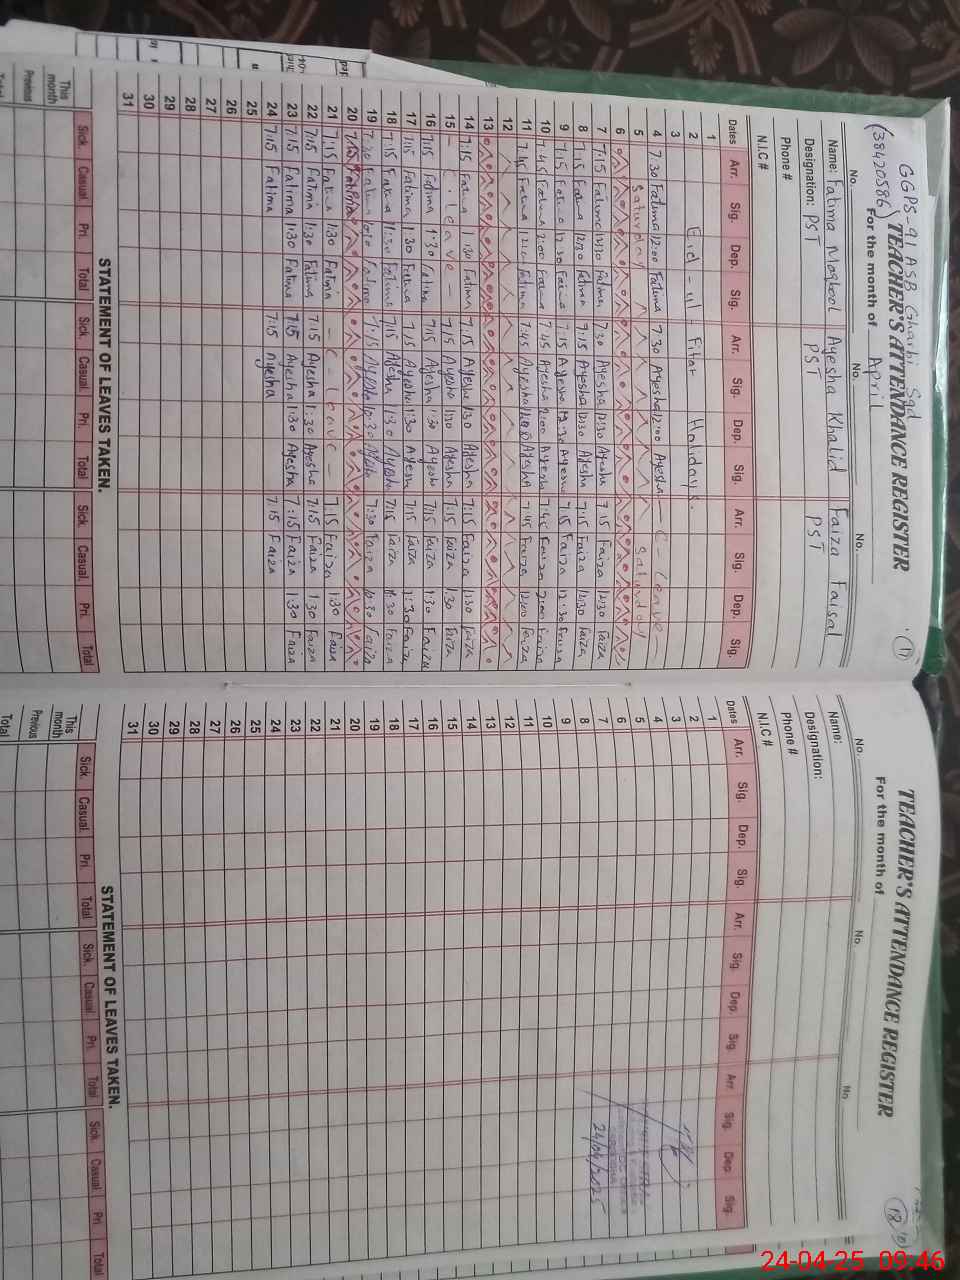 GGPS-91 ASB Gharbi Sgd
(38420586) TEACHER'S ATTENDANCE REGISTER
(17)
For the month of April
No. No. No.
Name: Fatima Maqbool Ayesha Khalid Faiza Faisal
Designation: PST PST PST
Phone #
N.I.C #
Dates Arr. Sig. Dep. Sig. Arr. Sig. Dep. Sig. Arr. Sig. Dep. Sig.
1
2 Eid - ul - Fitar Holidays.
3
4 7:30 Fatima 12:00 Fatima 7:30 Ayesha 12:00 Ayesha — C - Leave —
5 Saturday Saturday
6
7 7:15 Fatima 12:30 Fatima 7:30 Ayesha 12:30 Ayesha 7:15 Faiza 12:30 Faiza
8 7:15 Fatima 12:30 Fatima 7:15 Ayesha 12:30 Ayesha 7:15 Faiza 12:30 Faiza
9 7:15 Fatima 12:30 Fatima 7:15 Ayesha 12:30 Ayesha 7:15 Faiza 12:30 Faiza
10 7:45 Fatima 2:00 Fatima 7:45 Ayesha 2:00 Ayesha 7:45 Faiza 2:00 Faiza
11 7:45 Fatima Fatima 7:45 Ayesha Ayesha 7:45 Faiza 12:00 Faiza
12
13
14 7:15 Fatima 1:30 Fatima 7:15 Ayesha 1:30 Ayesha 7:15 Faiza 1:30 Faiza
15 — C. Leave — 7:15 Ayesha 1:30 Ayesha 7:15 Faiza 1:30 Faiza
16 7:15 Fatima 1:30 Fatima 7:15 Ayesha 1:30 Ayesha 7:15 Faiza 1:30 Faiza
17 7:15 Fatima 1:30 Fatima 7:15 Ayesha 1:30 Ayesha 7:15 Faiza 1:30 Faiza
18 7:15 Fatima 11:30 Fatima 7:15 Ayesha 1:30 Ayesha 7:15 Faiza Faiza
19 7:30 Fatima 10:30 Fatima 7:15 Ayesha 10:30 Ayesha 7:30 Faiza 10:30 Faiza
20
21 7:15 Fatima 1:30 Fatima — C - Leave — 7:15 Faiza 1:30 Faiza
22 7:15 Fatima 1:30 Fatima 7:15 Ayesha 1:30 Ayesha 7:15 Faiza 1:30 Faiza
23 7:15 Fatima 1:30 Fatima 7:15 Ayesha 1:30 Ayesha 7:15 Faiza 1:30 Faiza
24 7:15 Fatima 7:15 Ayesha 7:15 Faiza
25
26
27
28
29
30
31
STATEMENT OF LEAVES TAKEN.
Sick. Casual. Pri. Total Sick. Casual. Pri. Total Sick. Casual. Pri. Total
This month
Previous
TEACHER'S ATTENDANCE REGISTER
18
For the month of
No. No. No
Name:
Designation:
Phone #
N.I.C #
Dates Arr. Sig. Dep. Sig. Arr. Sig. Dep. Sig. Arr. Sig. Dep. Sig.
1
2
3
4
5
6
7 24/04/2025
8
9
10
11
12
13
14
15
16
17
18
19
20
21
22
23
24
25
26
27
28
29
30
31
STATEMENT OF LEAVES TAKEN.
Sick. Casual. Pri. Total Sick. Casual. Pri. Total Sick. Casual. Pri. Total
This month
Previous
Total
24-04-25 09:46